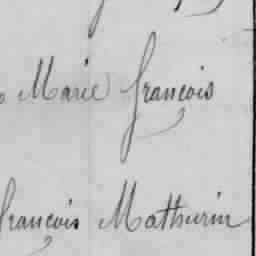 Marie françois
françois Mathurin